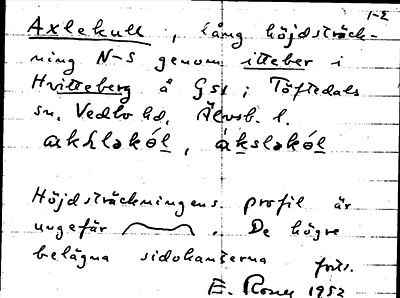 1-2
Axlekull, lång höjdsträck-
ning N-S genom itteber i
Hvitteberg å Gsk i Töftedals
sn. Vedbo hd. Älvsb. l.
Höjdsträckningens profil är
ungefär . De högre
belägna sidokanterna forts.
E. Rosell 1952